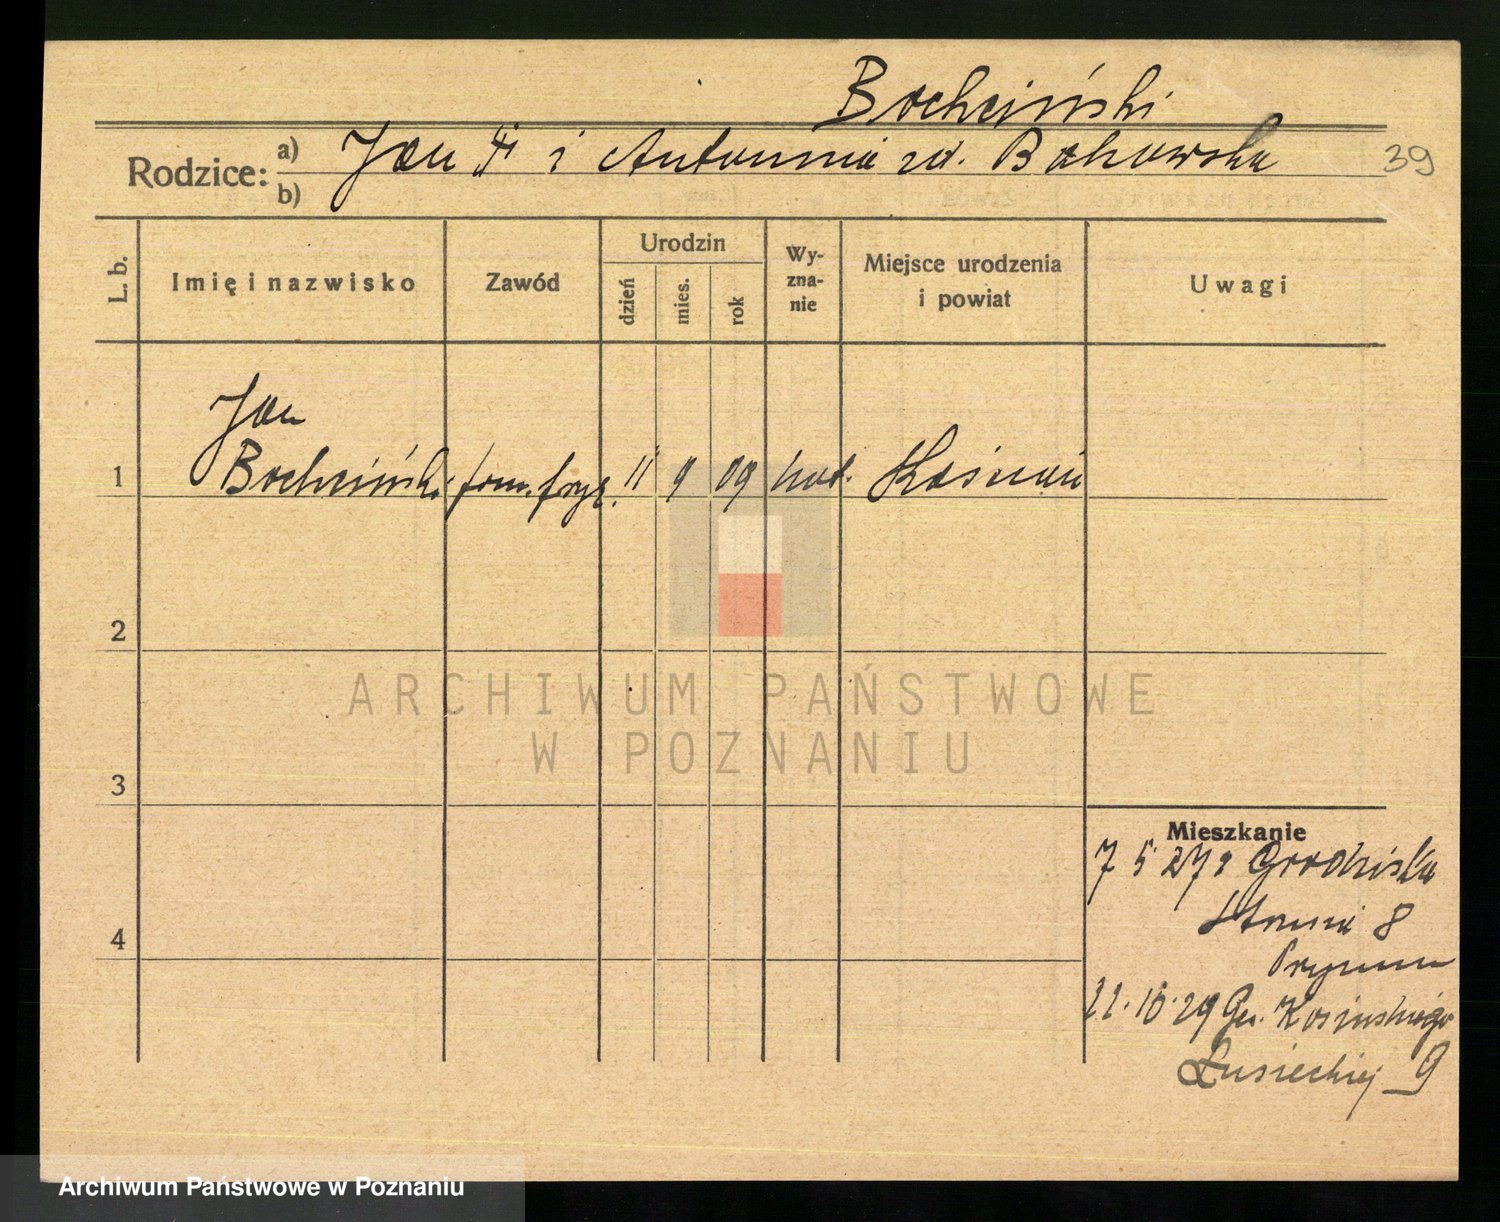 Bochciński
Rodzice: a) Jan i Antonina zd. Bakowska 39
b)
L. b. Imię i nazwisko Zawód Urodzin dzień mies. rok Wyznanie Miejsce urodzenia i powiat Uwagi
Jan
1 Bochciński 11 9 09 kat.
2
ARCHIWUM PAŃSTWOWE
W POZNANIU
3
Mieszkanie
7 5 27 Grodziska
Struma 8
4
22.10.29 Kosińskiego
9
Archiwum Państwowe w Poznaniu